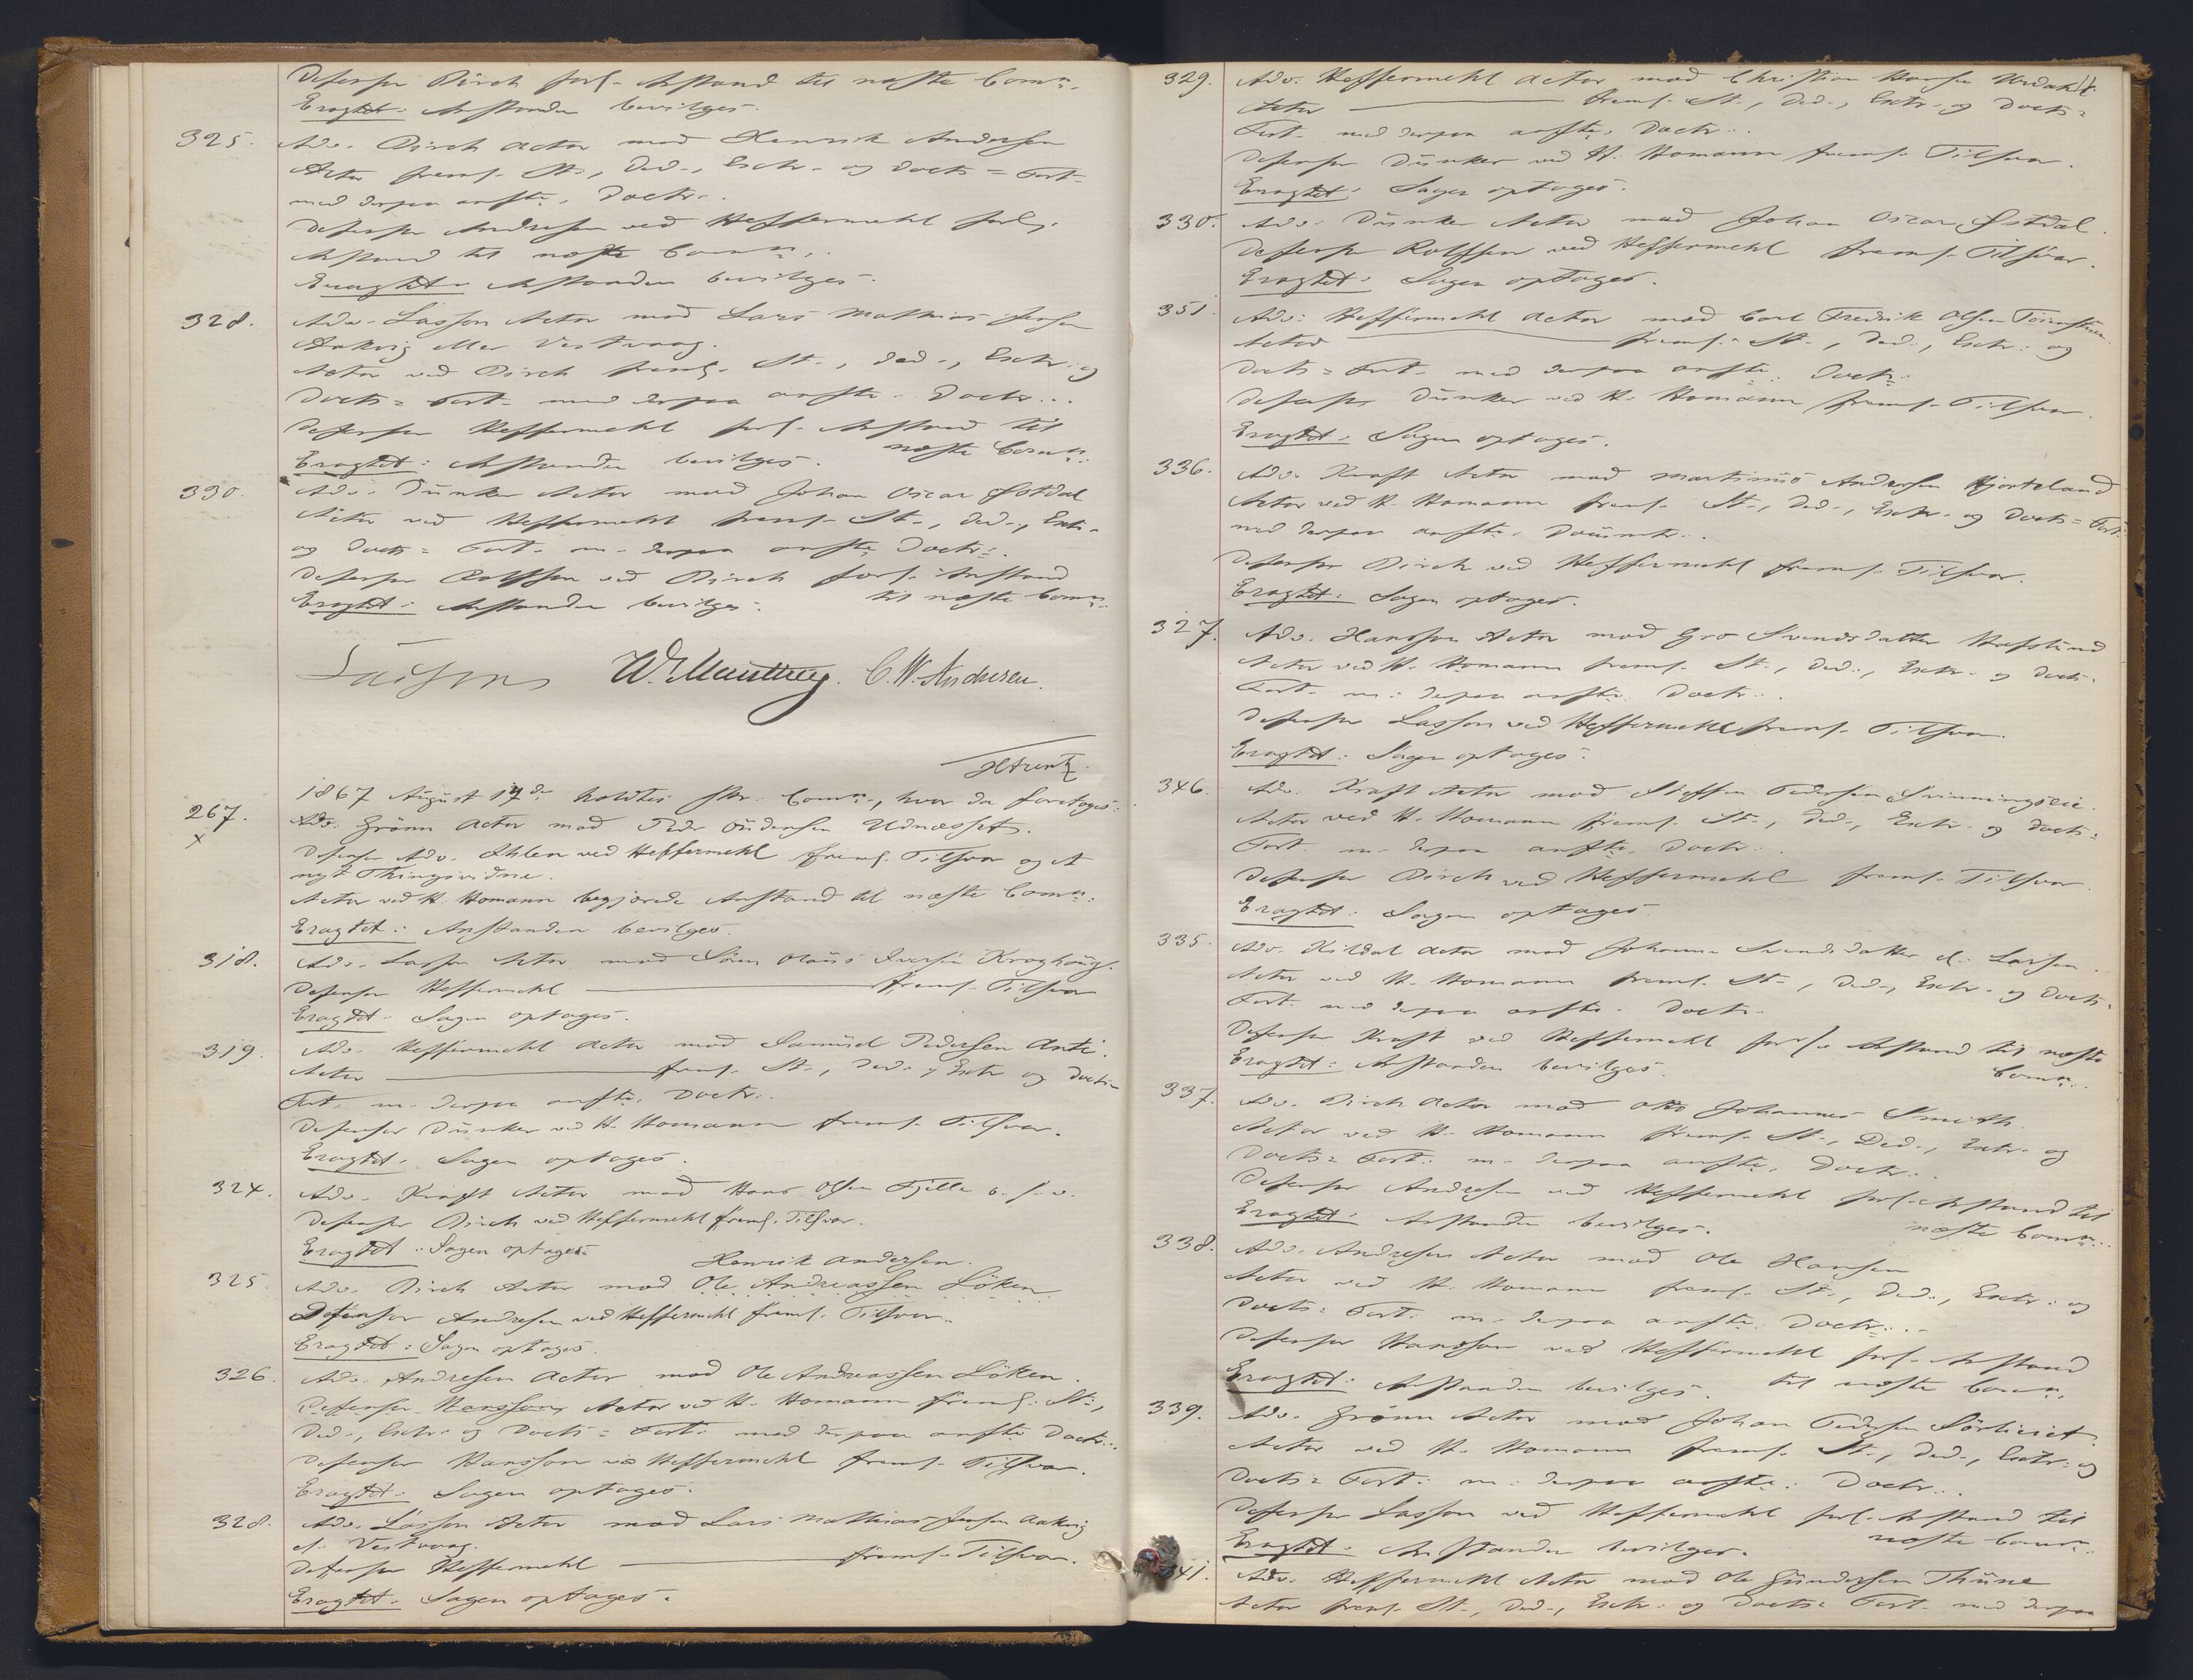 Defensor Birch forl. Anstand til næste Comn.
Eragtet: Anstanden bevilges.
325. Adv. Birch Actor mod Henrik Andersen
Actor freml. St., Ded., Extr. og Docts = Fort.
med derpaa anfte. Doctr..
Defensor Andresen ved Heffermehl forl.
Anstand til næste Comn..
Eragtet: Anstanden bevilges.
328. Adv. Lasson Actor mod Lars Mathias Jensen
Aakvig eller Vestvaag.
Actor ved Birch freml. St., Ded., Extr. og
Docts = Fort. med derpaa anfte. Doctr...
Defensor Heffermehl forl. Anstand til
næste Comn..
Eragtet: Anstanden bevilges.
330. Adv. Dunker Actor mod Johan Oscar Østdal
Actor ved Heffermehl freml. St., Ded., Extr.
og Docts = Fort. m. derpaa anfte. Doctr..
Defensor Rolffsen ved Birch forl. Anstand
til næste Comn..
Eragtet: Anstanden bevilges.
Lasson W. Manthey. C. W. Andresen.
1867 August 17de holdtes ltr. Comn., hvor da foretages:
267. Adv. Grönn Actor mod Peder Audensen Udnæsset.
x
Defensor Adv. Ihlen ved Heffermehl freml. Tilsvar og et
nyt Thingsvidne.
Actor ved H. Homann begjærede Anstand til næste Comn.
Eragtet: Anstanden bevilges.
318. Adv. Lasson Actor mod Sören Olaus Iversen Kroghaug.
Defensor Heffermehl freml. Tilsvar
Eragtet: Sagen optages.
319. Adv. Heffermehl Actor mod Samuel Pedersen Anti.
Actor freml. St., Ded., Extr. og Docts =
Fort. m. derpaa anfte. Doctr..
Defensor Dunker ved H. Homann freml. Tilsvar.
Eragtet: Sagen optages.
324. Adv. Kraft Actor mod Hans Olsen Fjelle o. s. v.
Defensor Birch ved Heffermehl freml. Tilsvar.
Eragtet: Sagen optages.
Henrik Andersen.
325. Adv. Birch Actor mod Ole Andreassen Löken
Defensor Andresen ved Heffermehl freml. Tilsvar.
Eragtet: Sagen optages.
326. Adv. Andresen Actor mod Ole Andreassen Löken.
Defensor Hansson, Actor ved H. Homann freml. St.,
Ded., Extr. og Docts = Fort. med derpaa anfte Doctr..
Defensor Hansson ved Heffermehl freml. Tilsvar.
Eragtet: Sagen optages.
328. Adv. Lasson Actor mod Lars Mathias Jensen Aakvig
el. Vestvaag.
Defensor Heffermehl freml. Tilsvar.
Eragtet: Sagen optages.
329. Adv. Heffermehl Actor mod Christian Hansen
Actor freml. St., Ded., Extr. og Docts =
Fort. med derpaa anfte. Doctr..
Defensor Dunker ved H. Homann freml. Tilsvar.
Eragtet: Sagen optages.
330. Adv. Dunker Actor mod Johan Oscar Østdal.
Defensor Rolffsen ved Heffermehl freml. Tilsvar.
Eragtet: Sagen optages.
351. Adv. Heffermehl Actor mod Carl Fredrik Olsen
Actor freml. St., Ded., Extr. og
Docts = Fort. med derpaa anfte. Doctr.
Defensor Dunker ved H. Homann freml. Tilsvar.
Eragtet: Sagen optages.
336. Adv. Kraft Actor mod Martinus Andersen Hjorteland
Actor ved H. Homann freml. St., Ded., Extr. og Docts = Fort.
med derpaa anfte. Doumtr..
Defensor Birch ved Heffermehl freml. Tilsvar.
Eragtet: Sagen optages.
327. Adv. Hansson Actor mod Gro Svendsdatter
Actor ved H. Homann freml. St., Ded., Extr. og Docts.
Fort. m. derpaa anfte. Doctr..
Defensor Lasson ved Heffermehl freml. Tilsvar.
Eragtet: Sagen optages.
346. Adv. Kraft Actor mod Steffen Pedersen Svinningseie.
Actor ved H. Homann freml. St., Ded., Extr. og Docts =
Fort. m. derpaa anfte. Doctr..
Defensor Birch ved Heffermehl freml. Tilsvar.
Eragtet: Sagen optages.
335. Adv. Kildal Actor mod Johanna Svendsdatter el. Larsen.
Actor ved H. Homann freml. St., Ded., Extr. og Docts.
Fort. med derpaa anfte. Doctr.
Defensor Kraft ved Heffermehl forl. Anstand til næste
Comn..
Eragtet: Anstanden bevilges.
337. Adv. Birch Actor mod Otto Johannes Smith.
Actor ved H. Homann freml. St., Ded., Extr. og
Docts = Fort. m. derpaa anfte. Doctr..
Defensor Andresen ved Heffermehl forl. Anstand til
næste Comn..
Eragtet: Anstanden bevilges.
338. Adv. Andresen Actor mod Ole Hansen
Actor ved H. Homann freml. St., Ded., Extr. og
Docts = Fort. m. derpaa anfte. Doctr...
Defensor Hansson ved Heffermehl forl. Anstand
til næste Comn.
Eragtet: Anstanden bevilges.
339. Adv. Grönn Actor mod Johan Pedersen Sörlieiet.
Actor ved H. Homann freml. St., Ded., Extr. og
Docts = Fort. m. derpaa anfte. Doctr...
Defensor Lasson ved Heffermehl forl. Anstand til
næste Comn..
Eragtet: Anstanden bevilges.
341. Adv. Heffermehl Actor mod Ole Gundersen Thune
Actor freml. St., Ded., Extr. og Docts = Fort. med derpaa